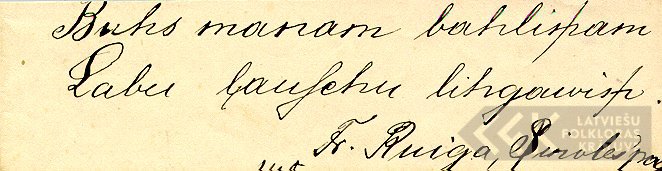 Buhs manam bahliņam
Labu ļauſchu lihgawiņ.
Fr. Ruiga,
LATVIEŠU
FOLKLORAS
KRĀTUVE